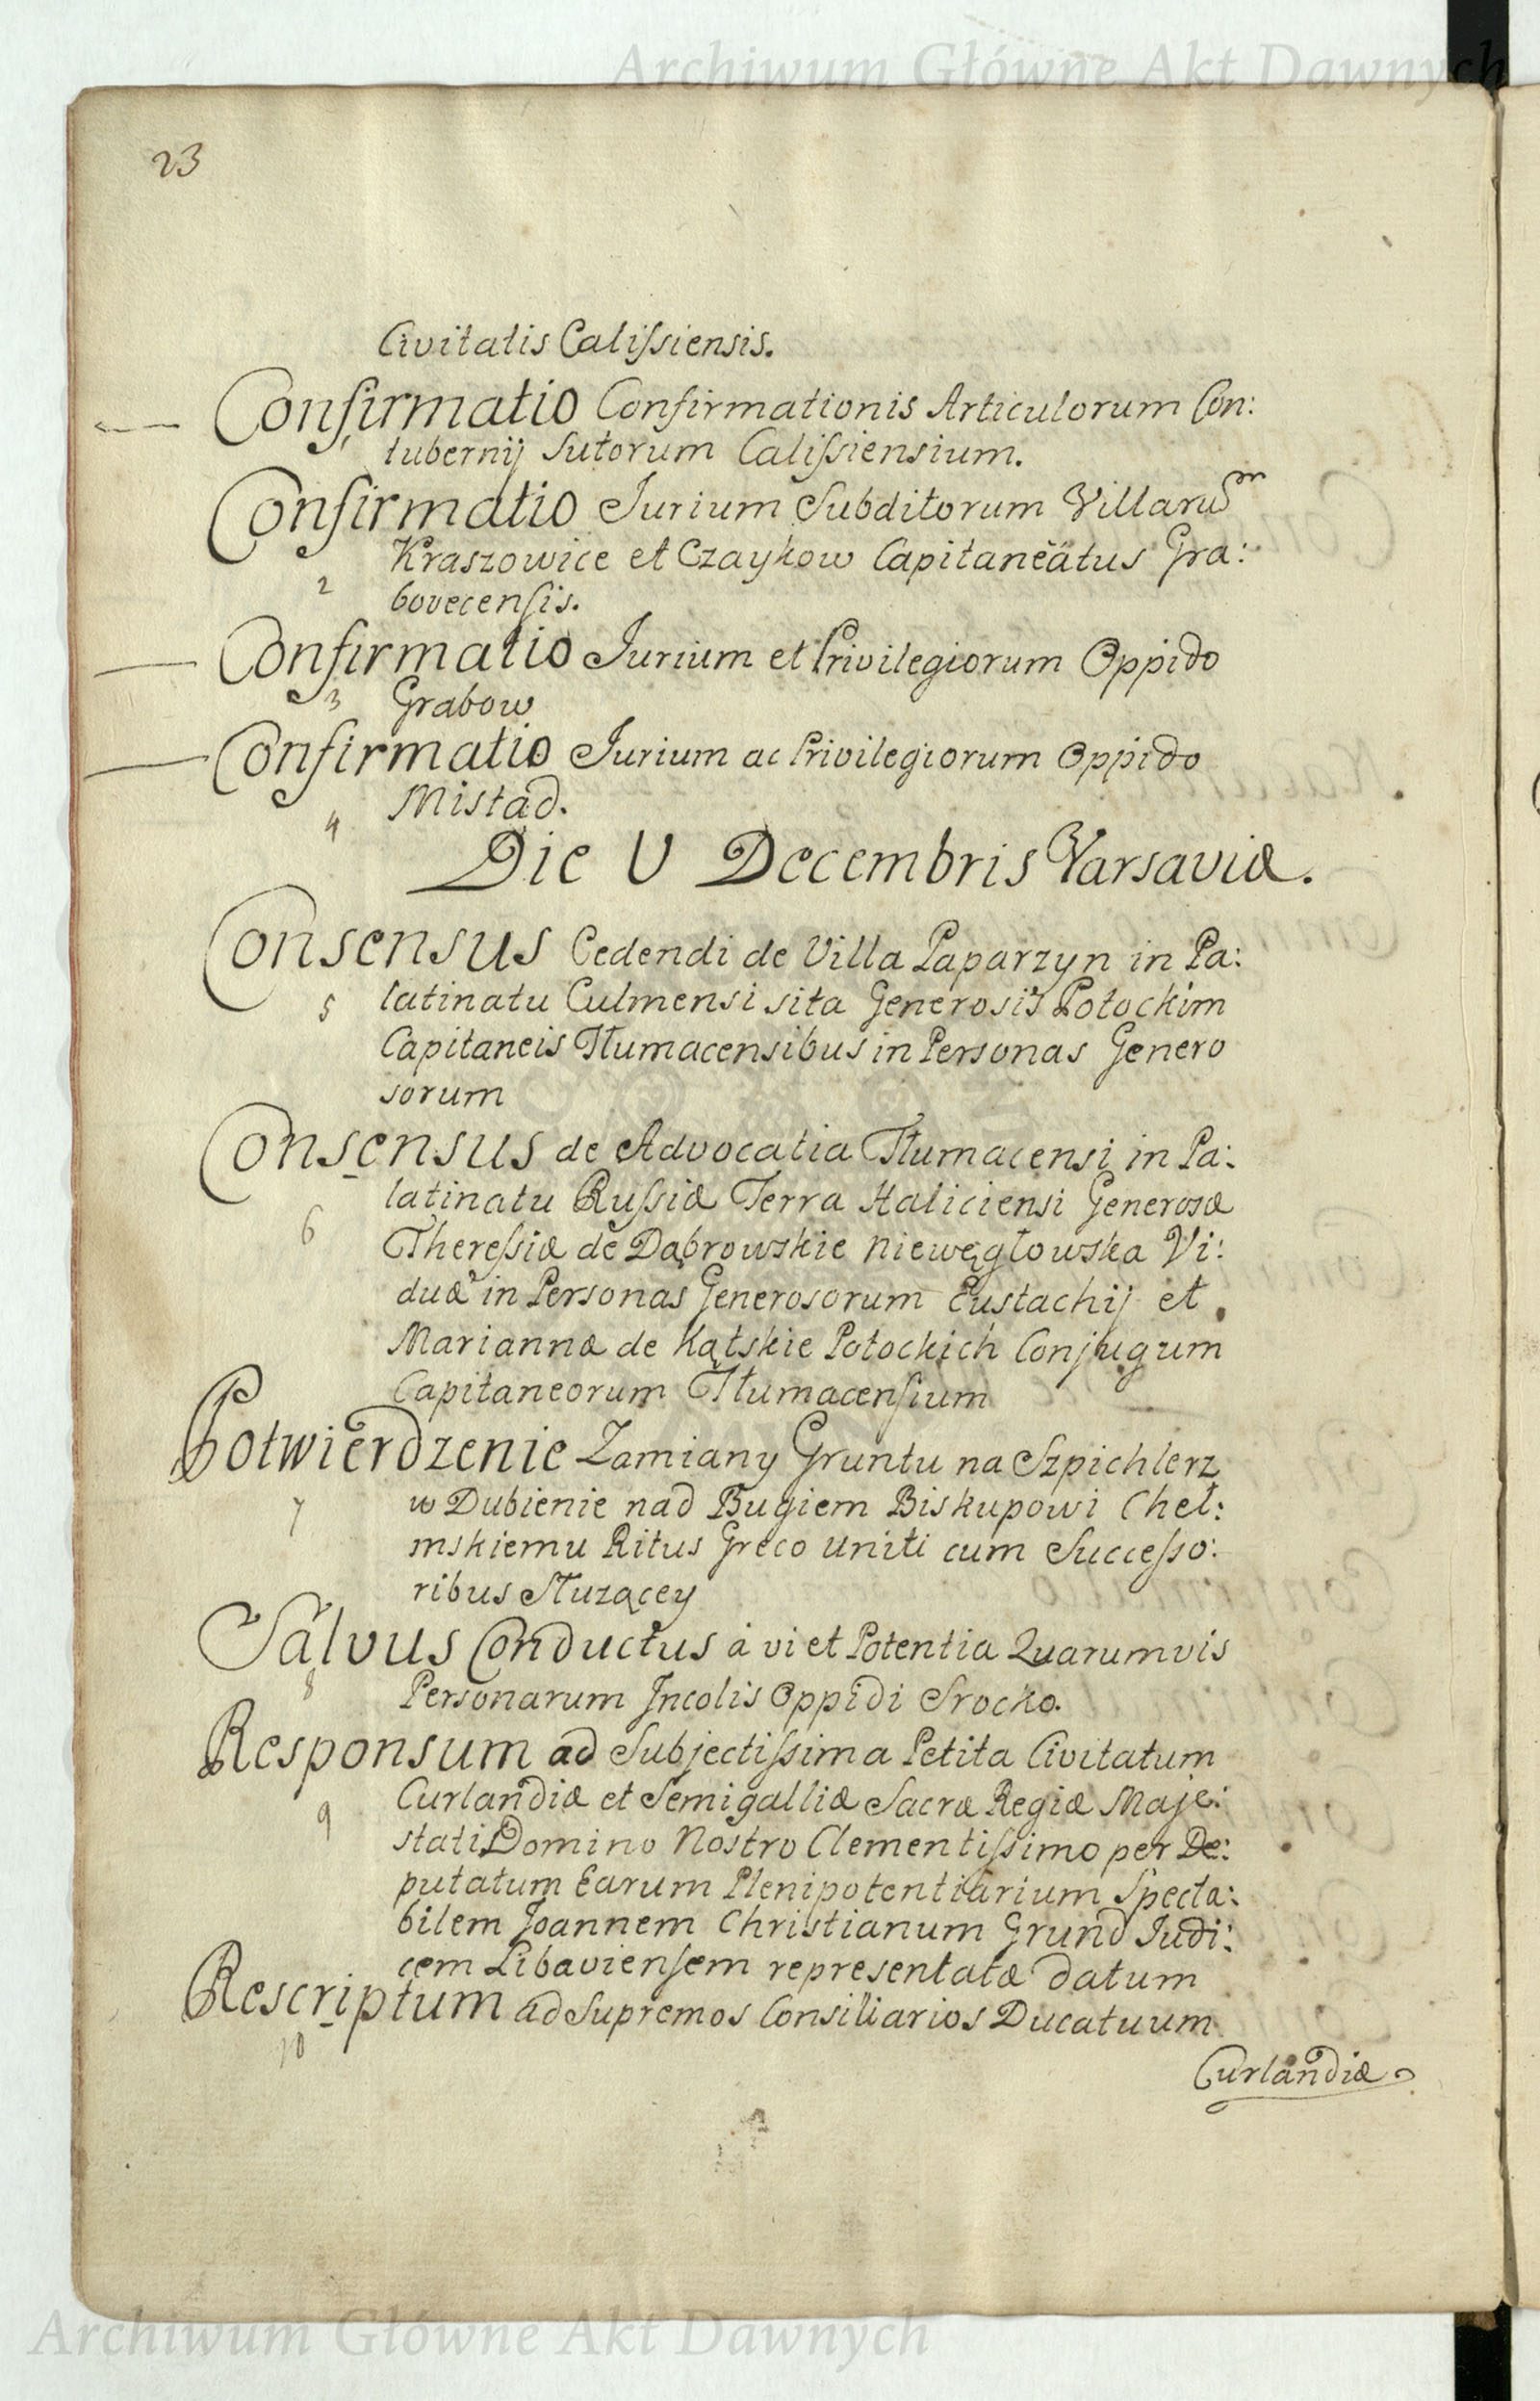 Archiwum Główne Akt Dawnych
23
Civitatis Calissiensis.
Confirmatio Confirmationis Articulorum Con:
tubernij Sutorum Calissiensium.
Confirmatio Jurium Subditorum Villarum
2 Kraszowice et Czaykow Capitaneatus Gra:
bovecensis.
Confirmatio Jurium et Privilegiorum Oppido
3 Grabow
Confirmatio Jurium ac Privilegiorum Oppido
4 Mistad.
Die V Decembris Varsaviæ.
Consensus Cedendi de Villa Paparzyn in Pa:
5 latinatu Culmensi sita Generosis Potockim
Capitaneis Tłumacensibus in Personas Genero
sorum
Consensus de Advocatia Tłumacensi in Pa:
6 latinatu Russiæ Terra Haliciensi Generosæ
Theressiæ de Dąbrowskie Niewęgłowska Vi:
duæ in Personas Generosorum Eustachij et
Mariannæ de Kątskie Potockich Conjugum
Capitaneorum Tłumacensium
Potwierdzenie Zamiany Gruntu na Szpichlerz
7 w Dubienie nad Bugiem Biskupowi Cheł:
mskiemu Ritus Greco Uniti cum Successo:
ribus Słuzącey
Salvus Conductus à vi et Potentia Quarumvis
8 Personarum Incolis Oppidi Srocko.
Responsum ad Subjectissima Petita Civitatum
9 Curlandiæ et Semigalliæ Sacræ Regiæ Maje:
stati Domino Nostro Clementissimo per De:
putatum Earum Plenipotentiarium Specta:
bilem Joannem Christianum Grund Judi:
cem Libaviensem representatæ datum
Rescriptum ad Supremos Consiliarios Ducatuum
10
Curlandiæ
Archiwum Główne Akt Dawnych